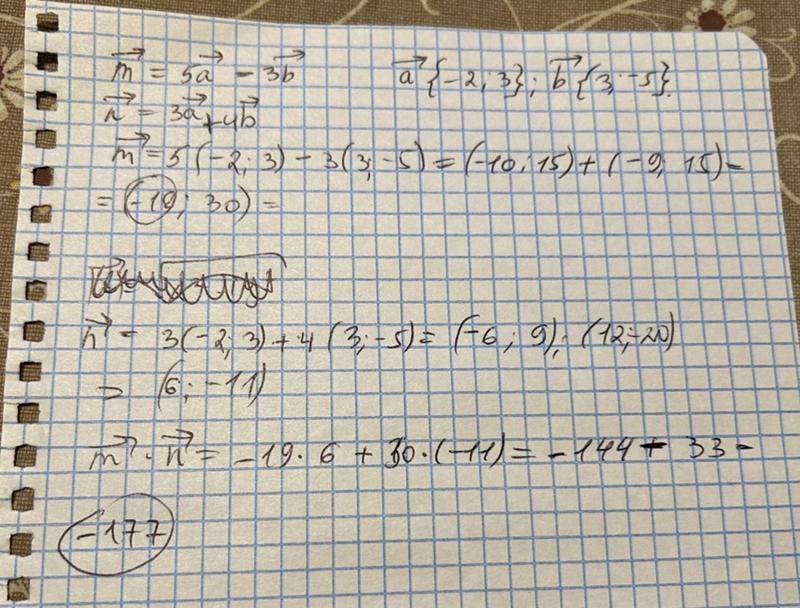 m⃗ = 5a⃗ - 3b⃗ a⃗ {-2; 3}; b⃗ {3; -5}.
n⃗ = 3a⃗ + 4b⃗
m⃗ = 5(-2; 3) - 3(3; -5) = (-10; 15) + (-9; 15) =
= (-19; 30) =
n⃗ = 3(-2; 3) + 4(3; -5) = (-6; 9); (12; -20)
= (6; -11)
m⃗ · n⃗ = -19 · 6 + 30 · (-11) = -144 - 33 =
-177